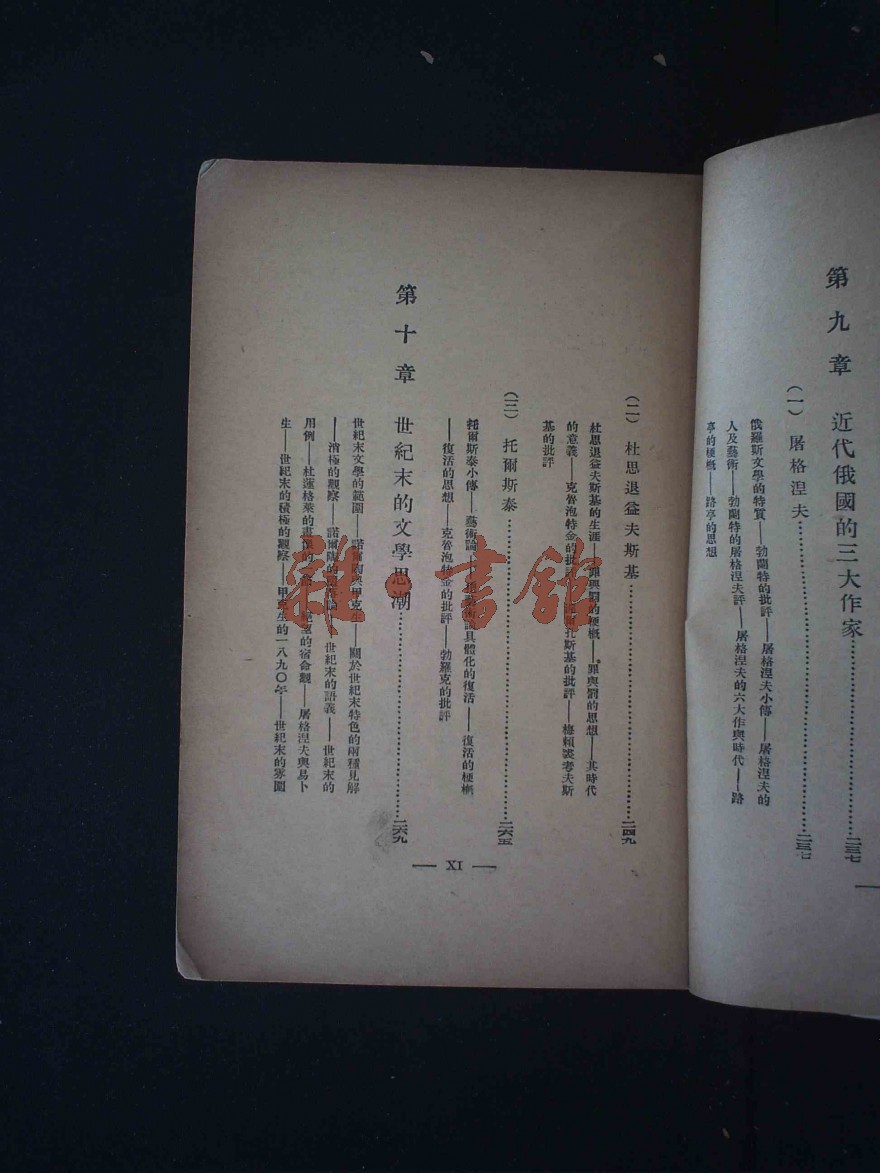 第九章 近代俄國的三大作家……二三七
(一) 屠格涅夫……二三七
俄羅斯文學的特質——勃蘭特的批評——屠格涅夫小傳——屠格涅夫的
人及藝術——勃蘭特的屠格涅夫評——屠格涅夫的六大作與時代——路
亭的梗概——路亭的思想
(二) 杜思退益夫斯基……二四九
杜思退益夫斯基的生涯——罪與罰的梗概——罪與罰的思想——其時代
的意義——克魯泡特金的批評——斯基的批評——梅賴裘考夫斯
基的批評
(三) 托爾斯泰……二六五
托爾斯泰小傳——藝術論——具體化的復活——復活的梗概
——復活的思想——克魯泡特金的批評——勃羅克的批評
第十章 世紀末的文學思潮……二六九
世紀末文學的範圍——諾爾陶與甲克生——關於世紀末特色的兩種見解
——消極的觀察——諾爾陶的——世紀末的語義——世紀末的
用例——杜蓮格萊的畫像的——絕望的宿命觀——屠格涅夫與易卜
生——世紀末的積極的觀察——甲克生的一八九〇年——世紀末的雰圍
— XI —
雜·書館